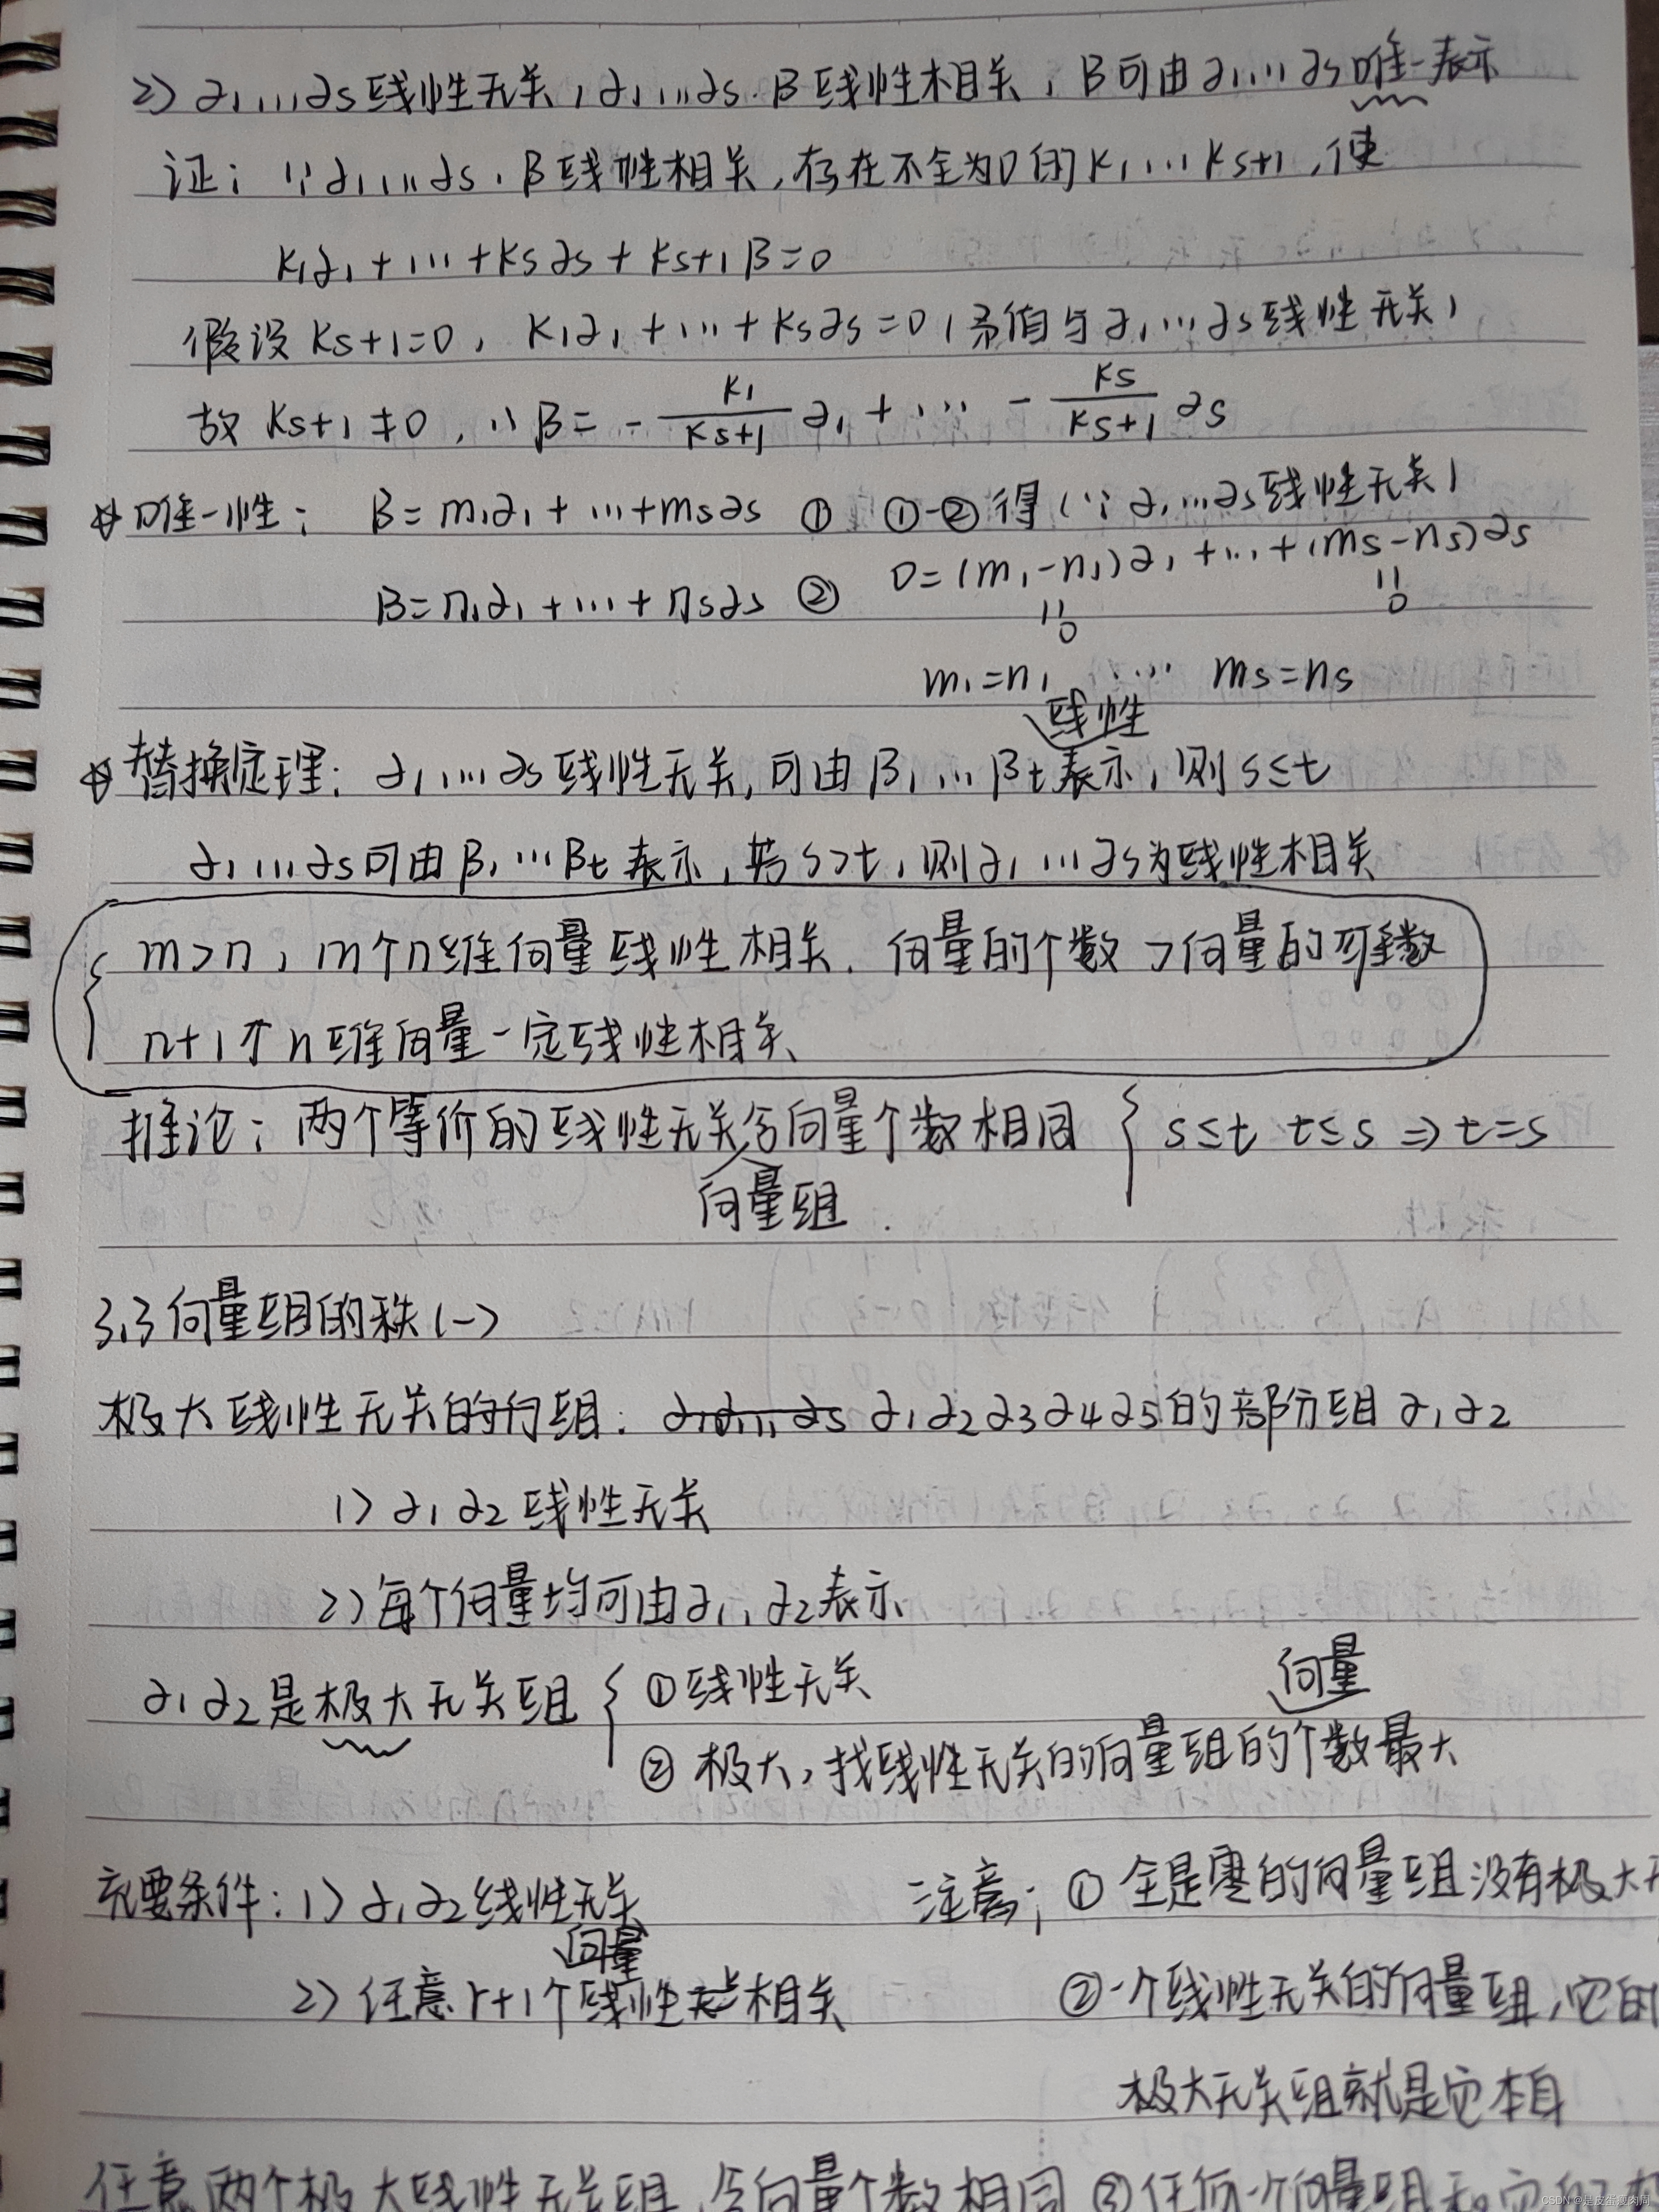 2) α₁,…αs线性无关,α₁,…αs.β线性相关,β可由α₁…αs唯一表示
证: ∵α₁,…αs.β线性相关,存在不全为0的k₁,…ks+1,使
k₁α₁+…+ksαs+ks+1β=0
假设ks+1=0, k₁α₁+…+ksαs=0(矛盾与α₁…αs线性无关)
故ks+1≠0, ∴β=-k₁/ks+1 α₁+…-ks/ks+1 αs
☆唯一性: β=m₁α₁+…+msαs ① ①-②得(∵α₁…αs线性无关)
β=n₁α₁+…+nsαs ② 0=(m₁-n₁)α₁+…+(ms-ns)αs
|| ||
0 0
m₁=n₁ … ms=ns
线性
☆替换定理: α₁,…αs线性无关,可由β₁…βt表示,则s≤t
α₁…αs可由β₁…βt表示,若s>t,则α₁…αs为线性相关
m>n, m个n维向量线性相关. 向量的个数>向量的维数
n+1个n维向量一定线性相关
推论: 两个等价的线性无关含向量个数相同 { s≤t t≤s ⇒ t=s
向量组
3.3向量组的秩(一)
极大线性无关的向组: α₁α₂α₃α₄α₅的部分组α₁α₂
1) α₁α₂线性无关
2) 每个向量均可由α₁,α₂表示
α₁α₂是极大无关组 { ①线性无关
向量
②极大,找线性无关的向量组的个数最大
充要条件: 1) α₁α₂线性无关 注意: ①全是零的向量组没有极大
向量
2) 任意r+1个线性相关 ②一个线性无关的向量组,它的
极大无关组就是它本身
任意两个极大线性无关组,含向量个数相同 ③任何一个向量组和它的
CSDN @是皮蛋瘦肉周